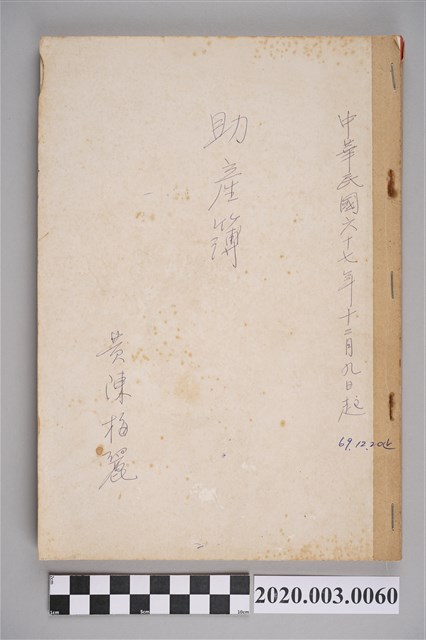 中華民國六十七年十二月九日起
69.12.20止
助產簿
黃陳梅麗
1cm 5cm 10cm
2020.003.0060